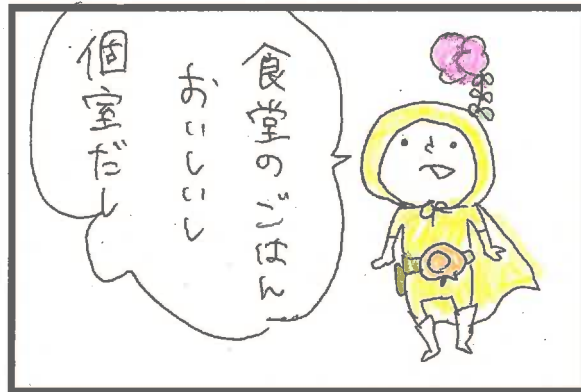 食堂のごはん
おいしいし
個室だし